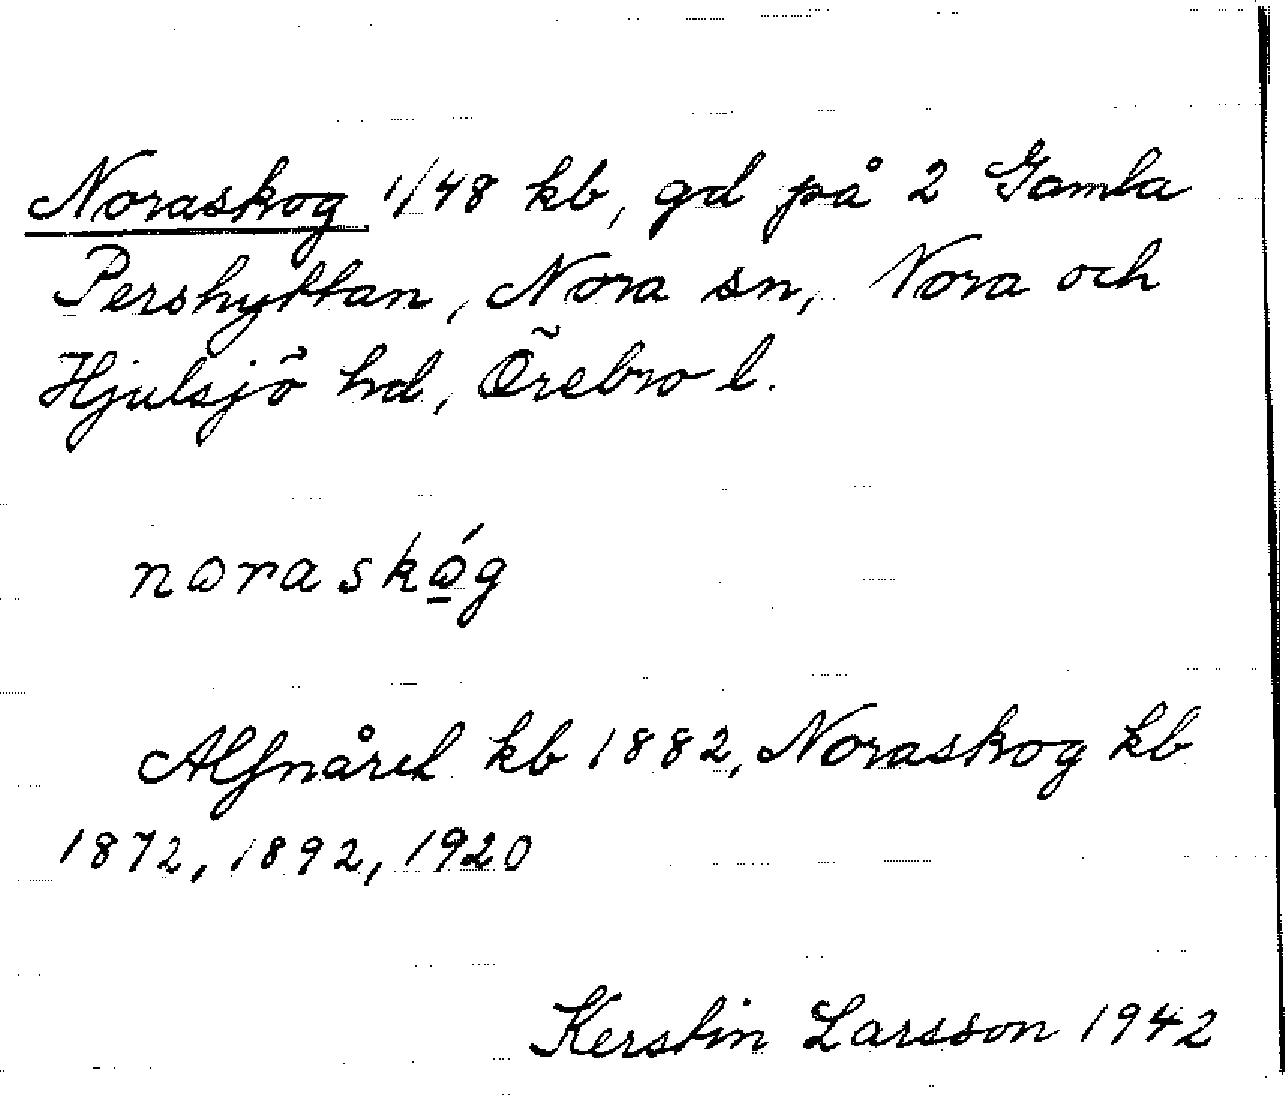 Noraskog 1/48 kb, gd på 2 Gamla
Pershyttan, Nora sn, Nora och
Hjulsjö hd, Örebro l.
noraskóg
kb 1882, Noraskog kb
1872, 1892, 1920
Kerstin Larsson 1942